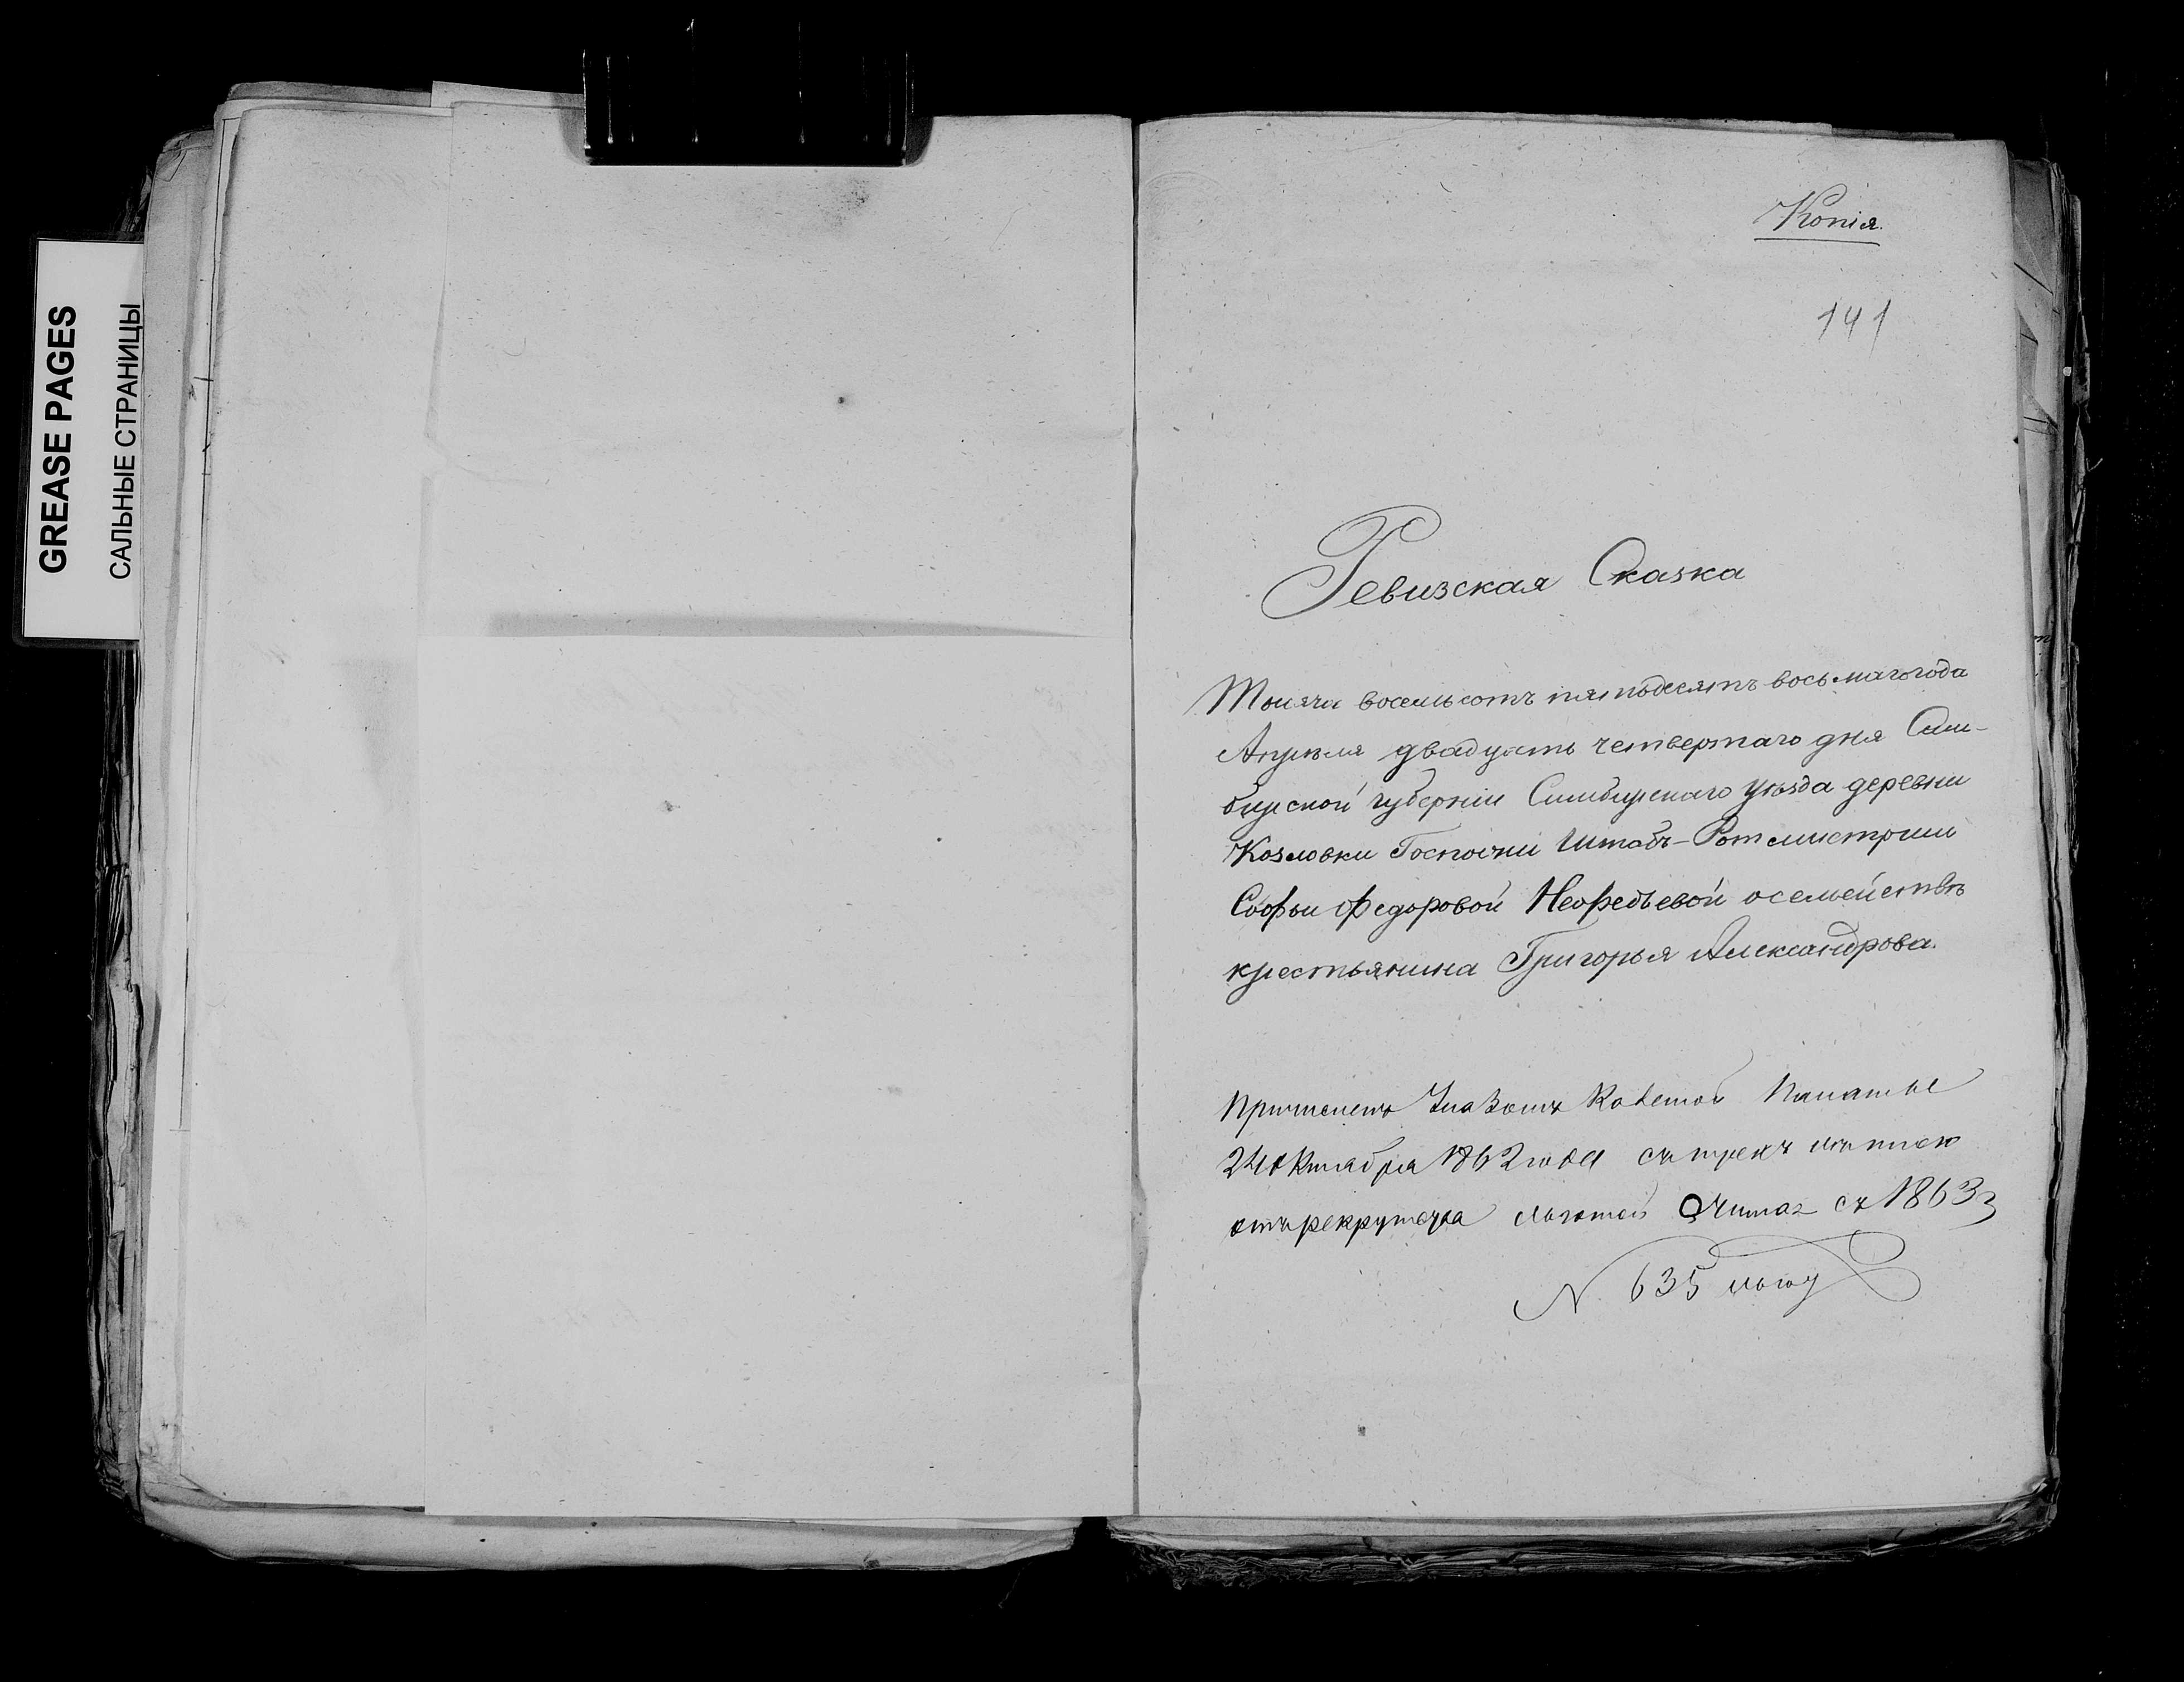 GREASE PAGES
САЛЬНЫЕ СТРАНИЦЫ
Копія.
141
Ревизская Сказка
Тысяча восемьсотъ пятьдесятъ восьмаго года
Апрѣля двадцать четвертаго дня Сим-
бирской губерніи Симбирскаго уѣзда деревни
Козловки Госпожи Штабъ-Ротмистрши
Софьи Федоровой Нефедьевой о семействѣ
крестьянина Григорья Александрова.
Причисленъ Указомъ Палаты
24 Октября 1862 года съ трехъ лѣтнею
отъ рекрутства льготой съ 1863 г
N. 635